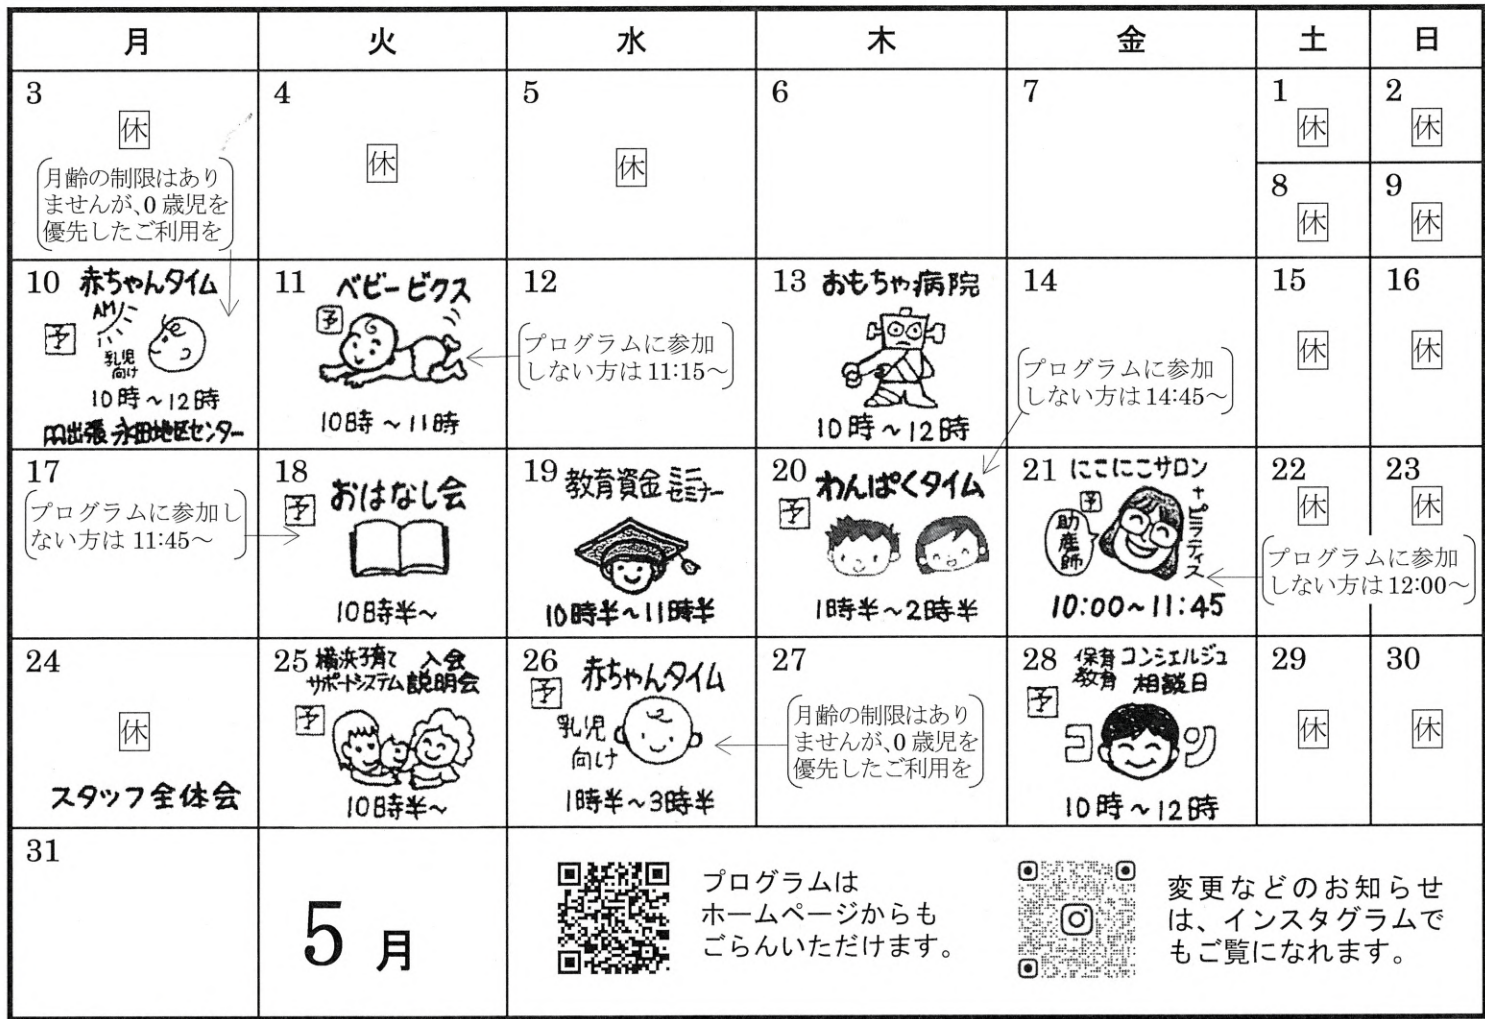 月 火 水 木 金 土 日
3
休
月齢の制限はあり
ませんが、0歳児を
優先したご利用を
4
休
5
休
6
7
1
休
2
休
8
休
9
休
10 赤ちゃんタイム
予
AM
乳児
向け
10時～12時
出張 永田地区センター
11 ベビービクス
予
10時～11時
12
プログラムに参加
しない方は11:15～
13 おもちゃ病院
10時～12時
14
プログラムに参加
しない方は14:45～
15
休
16
休
17
プログラムに参加し
ない方は11:45～
18
予
おはなし会
10時半～
19 教育資金ミニセミナー
10時半～11時半
20
予
わんぱくタイム
1時半～2時半
21 にこにこサロン
+ピラティス
予
助産師
10:00～11:45
22
休
23
休
プログラムに参加
しない方は12:00～
24
休
スタッフ全体会
25 横浜子育て 入会
サポートシステム 説明会
予
10時半～
26
予
赤ちゃんタイム
乳児
向け
1時半～3時半
27
月齢の制限はあり
ませんが、0歳児を
優先したご利用を
28 保育 コンシェルジュ
教育 相談日
予
コ ン
10時～12時
29
休
30
休
31
5月
プログラムは
ホームページからも
ごらんいただけます。
変更などのお知らせ
は、インスタグラムで
もご覧になれます。